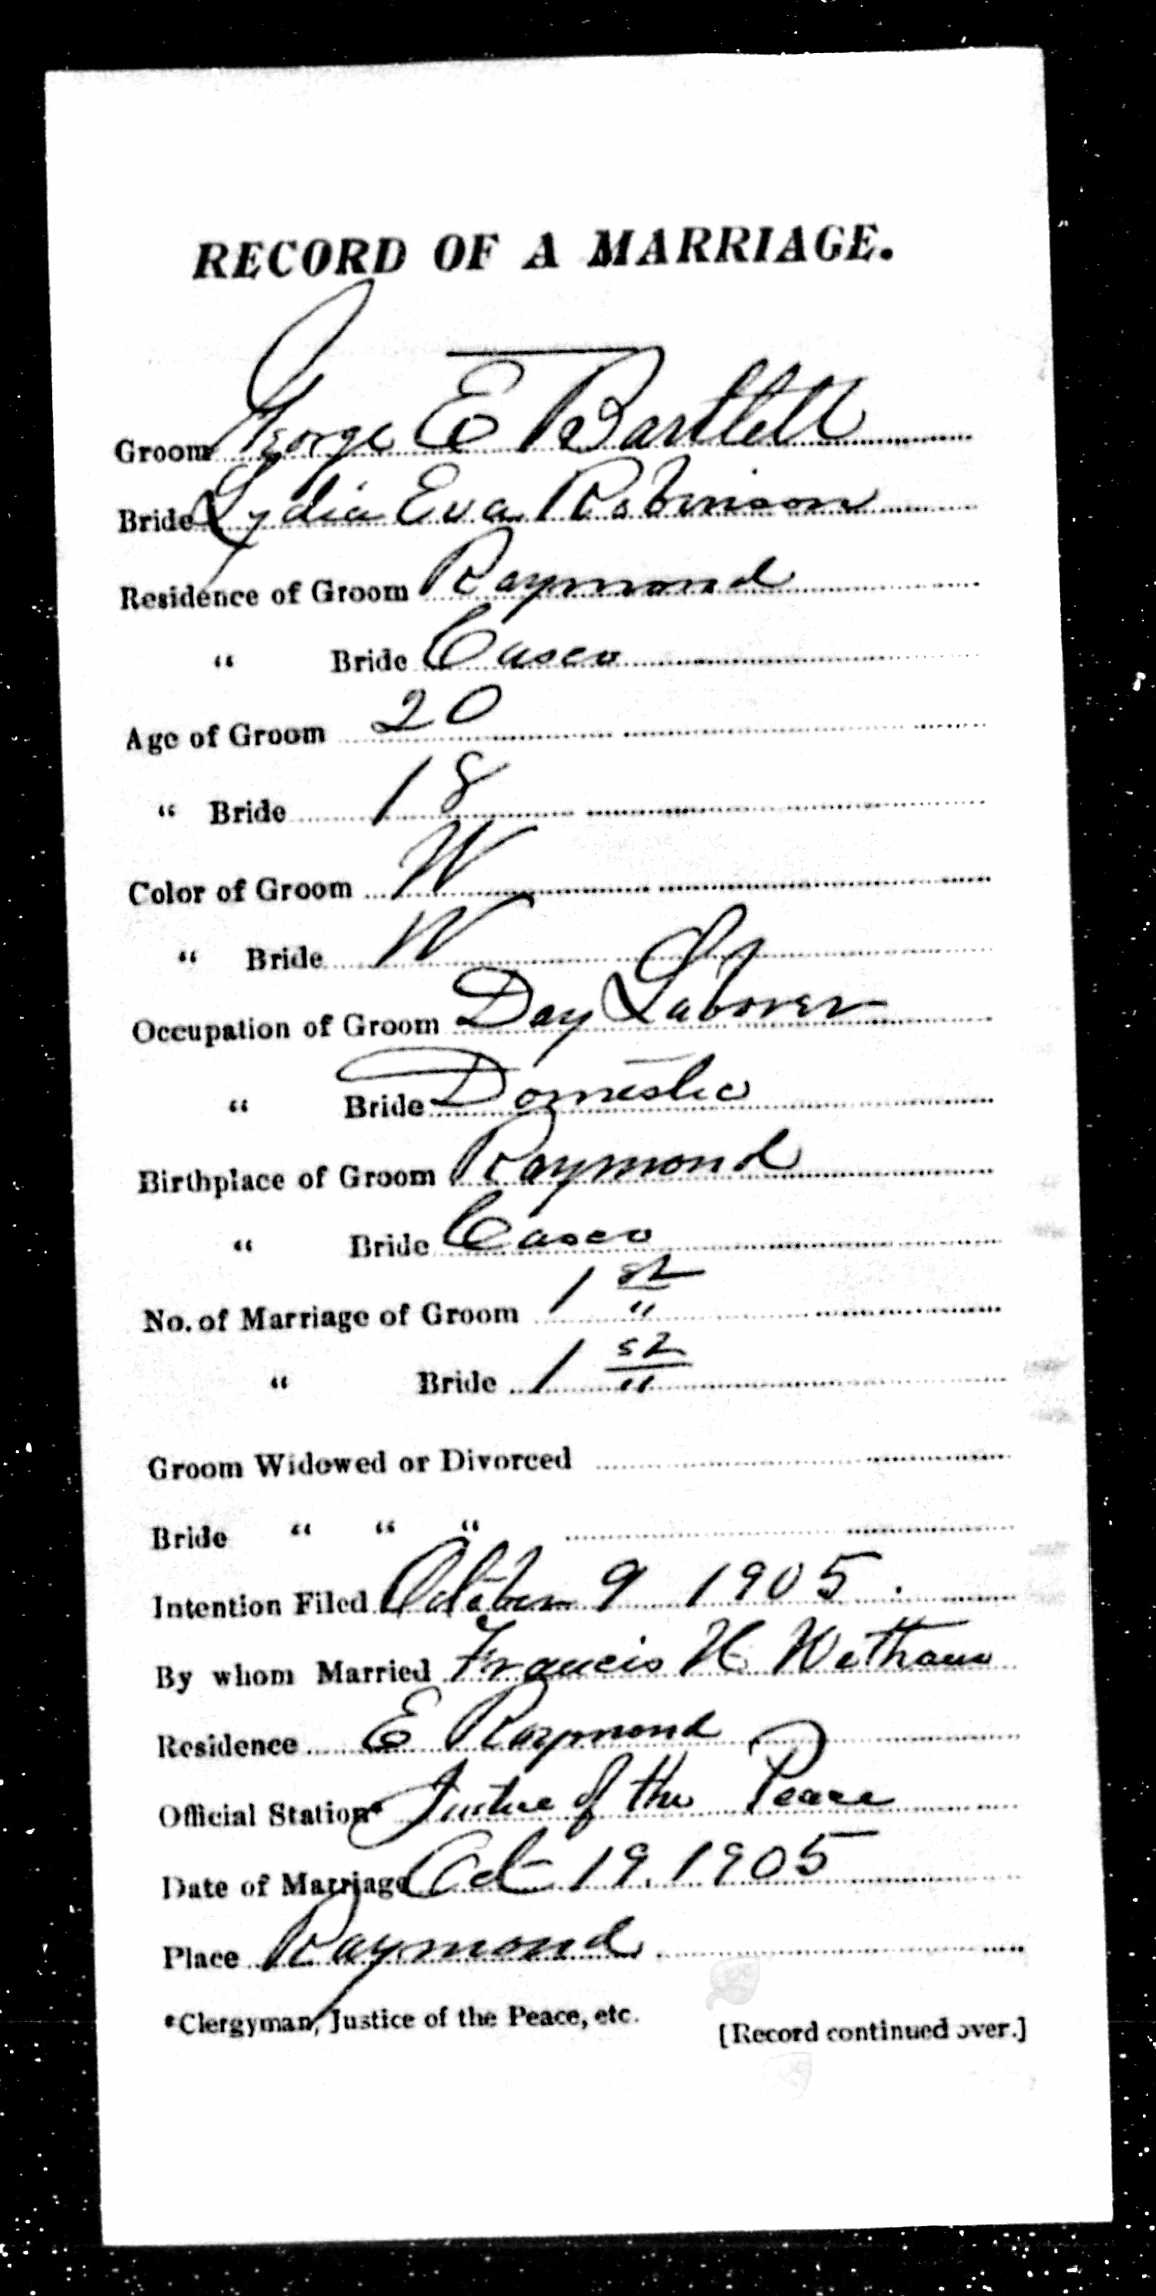 RECORD OF A MARRIAGE.
Groom George E Bartlett
Bride Lydia Eva Robinson
Residence of Groom Raymond
“ Bride Casco
Age of Groom 20
“ Bride 18
Color of Groom W
“ Bride W
Occupation of Groom Day Laborer
“ Bride Domestic
Birthplace of Groom Raymond
“ Bride Casco
No. of Marriage of Groom 1st
“ Bride 1st
Groom Widowed or Divorced
Bride “ “ “
Intention Filed October 9 1905.
By whom Married Francis H
Residence E Raymond
Official Station* Justice of the Peace
Date of Marriage Oct 19, 1905
Place Raymond
*Clergyman, Justice of the Peace, etc.
[Record continued over.]